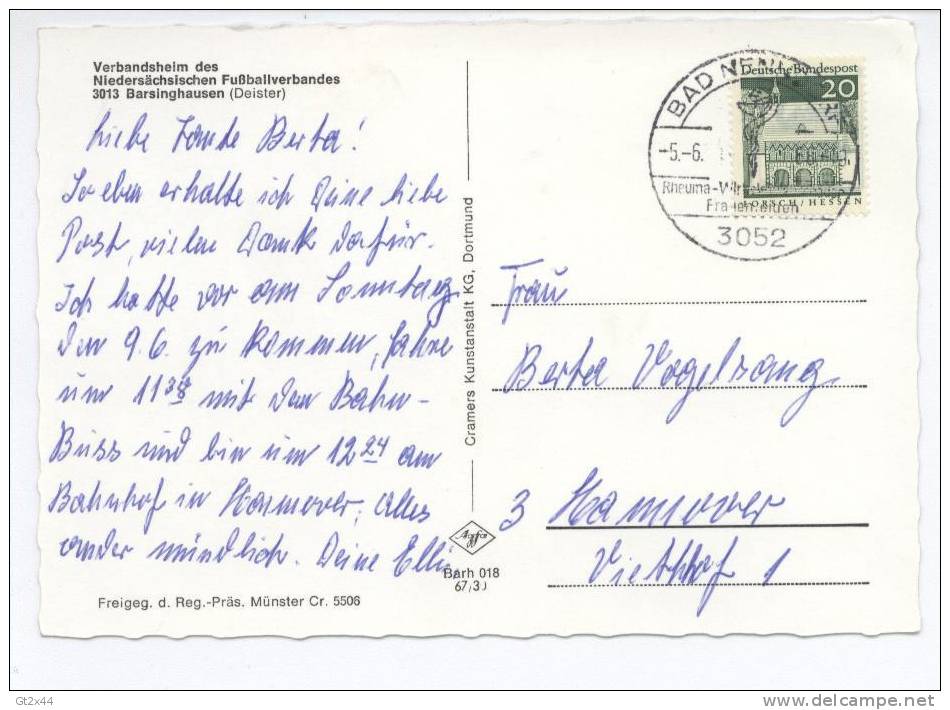 Verbandsheim des
Niedersächsischen Fußballverbandes
3013 Barsinghausen (Deister)
Liebe Tante Berta!
So eben erhalte ich Deine liebe
Post, vielen Dank dafür.
Ich hatte vor am Sonntag
den 9.6. zu kommen, fahre
um 11 38 mit dem Bahn-
Buss und bin um 12 24 am
Bahnhof in Hannover, alles
ander mündlich. Deine Elli
Freigeg. d. Reg.-Präs. Münster Cr. 5506
Cramers Kunstanstalt KG, Dortmund
Agfa
Barh 018
67/3
BAD NENN
-5.-6.
Rheuma-
Frauenleiden
3052
Deutsche Bundespost
20
LORSCH/HESSEN
Frau
Berta Vogelsang
3 Hannover
Viethhof 1
Gt2x44
delcampe.net